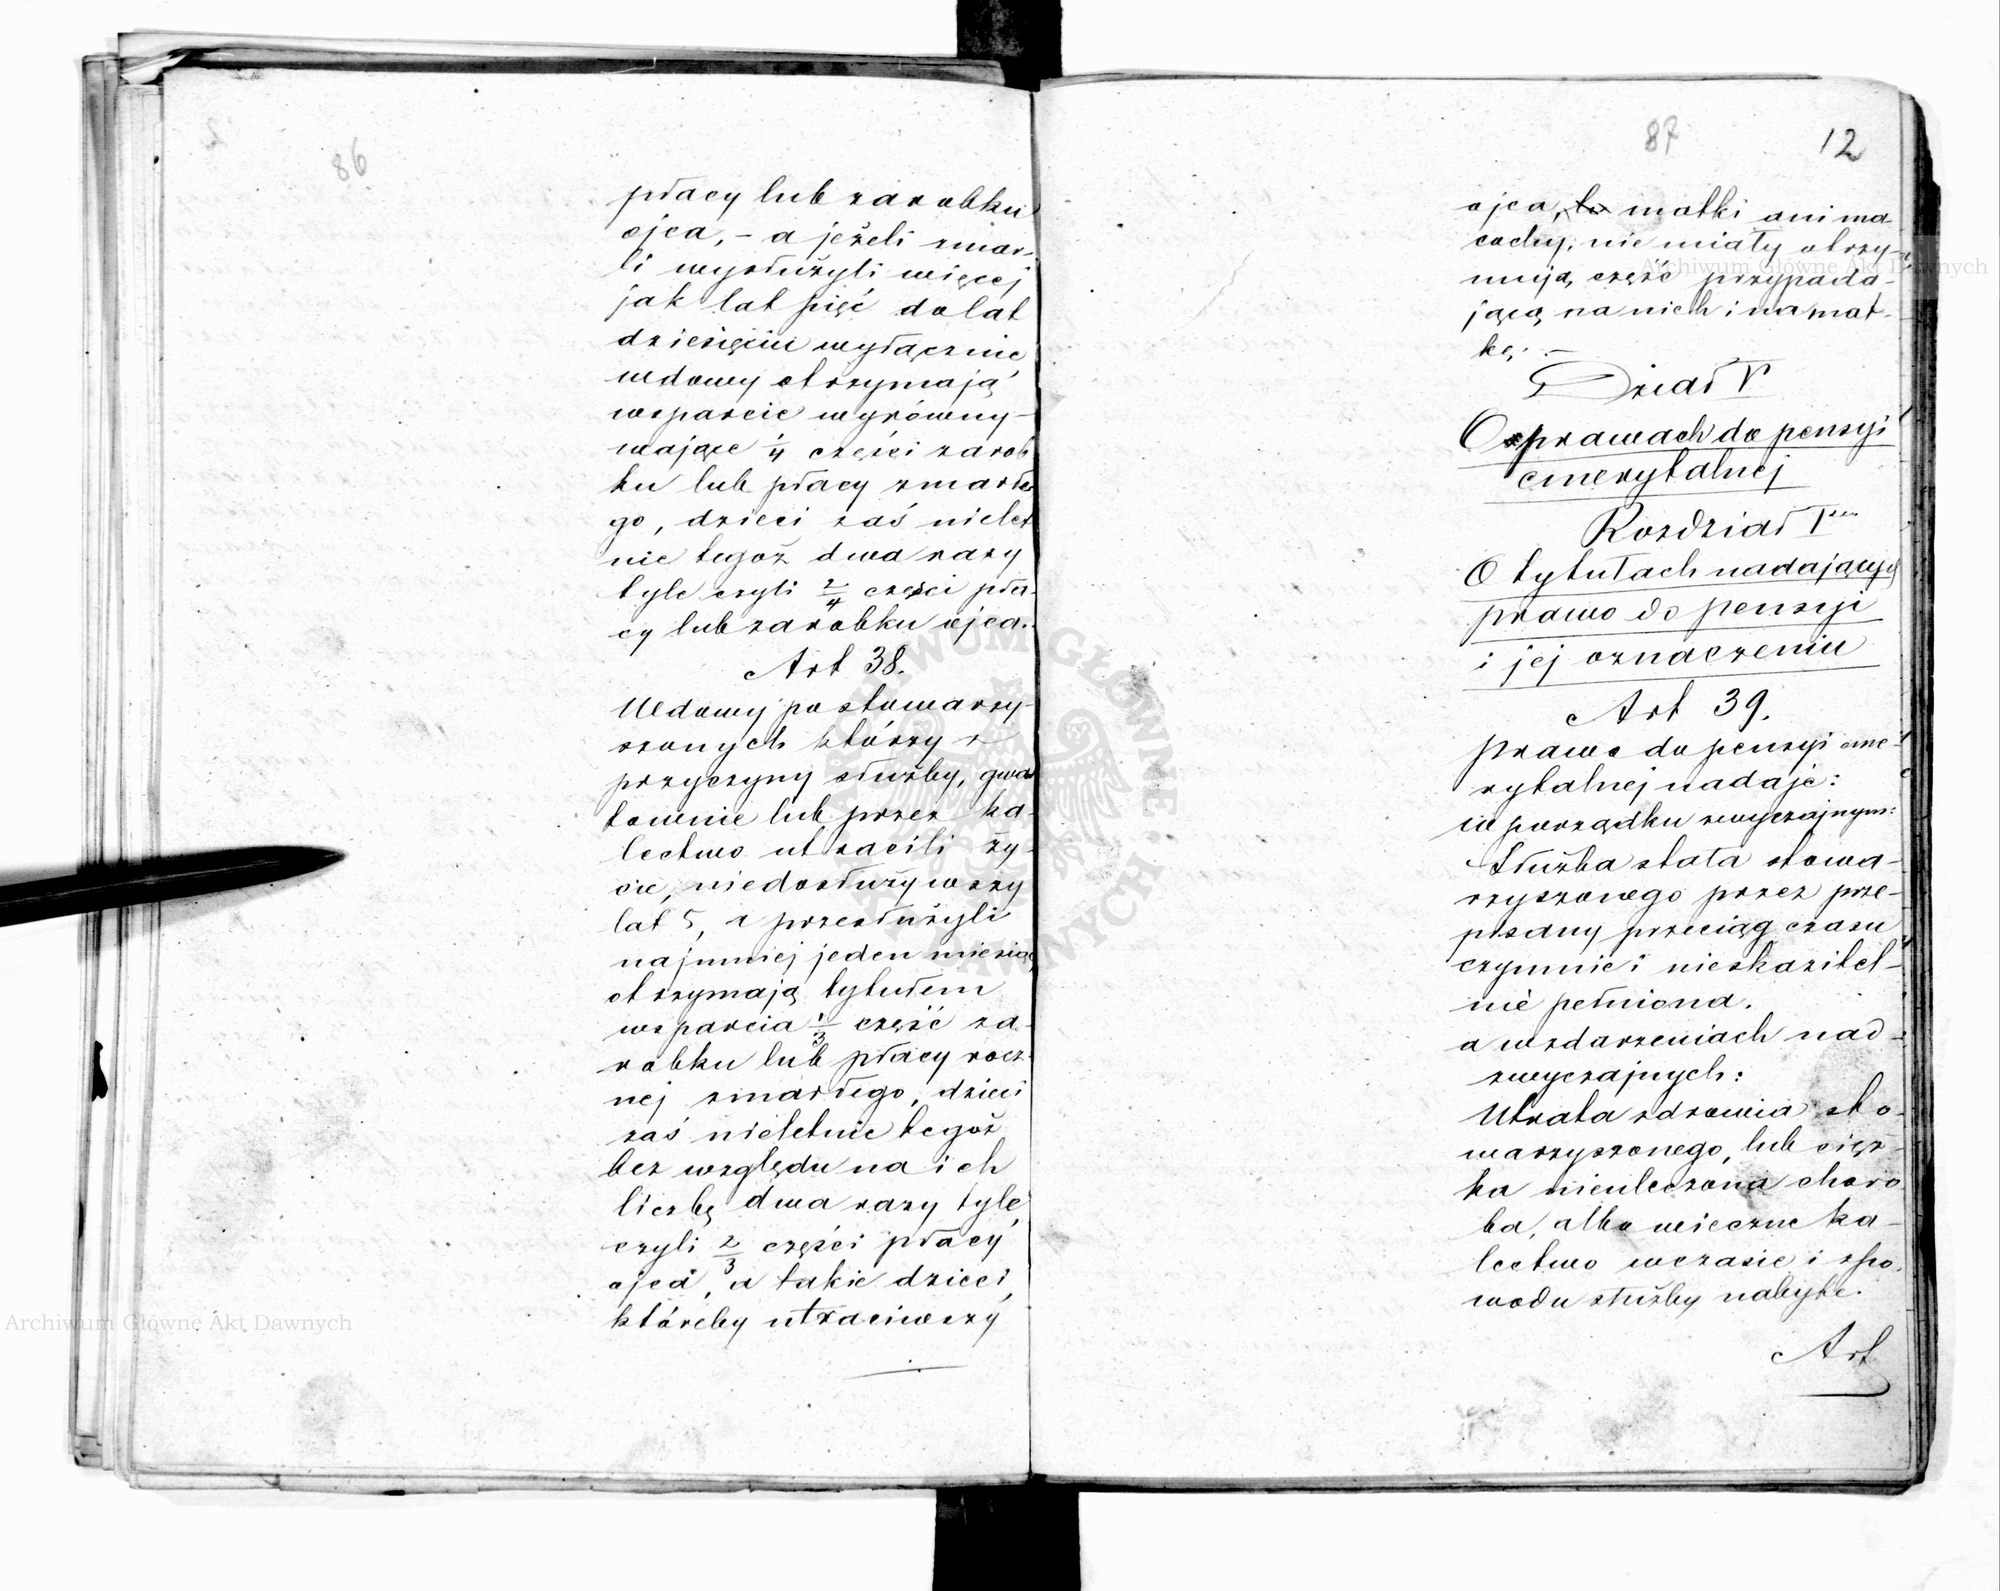 86
płacy lub zarobku
ojca, – a jeżeli zmar-
li wysłużyli więcej
jak lat pięć do lat
dziesięciu wyłącznie
wdowy otrzymają
wsparcie wyrówny-
wające 1/4 części zarob
ku lub płacy zmarłe
go, dzieci zaś nielet
nie tegoż dwa razy
tyle czyli 2/4 części pła-
cy lub zarobku ojca.
Art 38.
Wdowy po stowarzy-
szonych którzy z
przyczyny służby, gwa
townie lub przez ka-
lectwo utracili ży-
cie, niedosłużywszy
lat 5, a przesłużyli
najmniej jeden miesiąc
otrzymają tytułem
wsparcia 1/3 część za-
robku lub płacy rocz-
nej zmarłego, dzieci
zaś nieletnie tegoż
bez względu na ich
liczbę dwa razy tyle
czyli 2/3 części płacy
ojca, a takie dzieci,
któreby utraciwszy
87 12
ojca, matki ani ma
cochy, nie miały otrzy-
mują część przypada-
jącą na nich i na mat-
kę. –
Dział V
O prawach do pensyi
emerytalnej
Rozdział I
O tytułach nadających
prawo do pensyi
i jej oznaczeniu
Art 39.
Prawo do pensyi eme-
rytalnej nadaje:
w porządku zwyczajnym:
Służba stała stowa-
rzyszonego przez prze-
pisany przeciąg czasu
czynnie i nieskazitel-
nie pełniona.
a w zdarzeniach nad-
zwyczajnych:
Utrata zdrowia sto-
warzyszonego, lub cięż-
ka nieuleczona choro
ba, albo wieczne ka-
lectwo w czasie i z po-
wodu służby nabyte.
Art
Archiwum Główne Akt Dawnych
Archiwum Główne Akt Dawnych